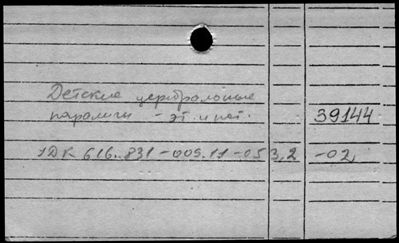 Детские церебральные
параличи - эт. и пат. 39144
УДК 616.831-009.11-053,2 -02